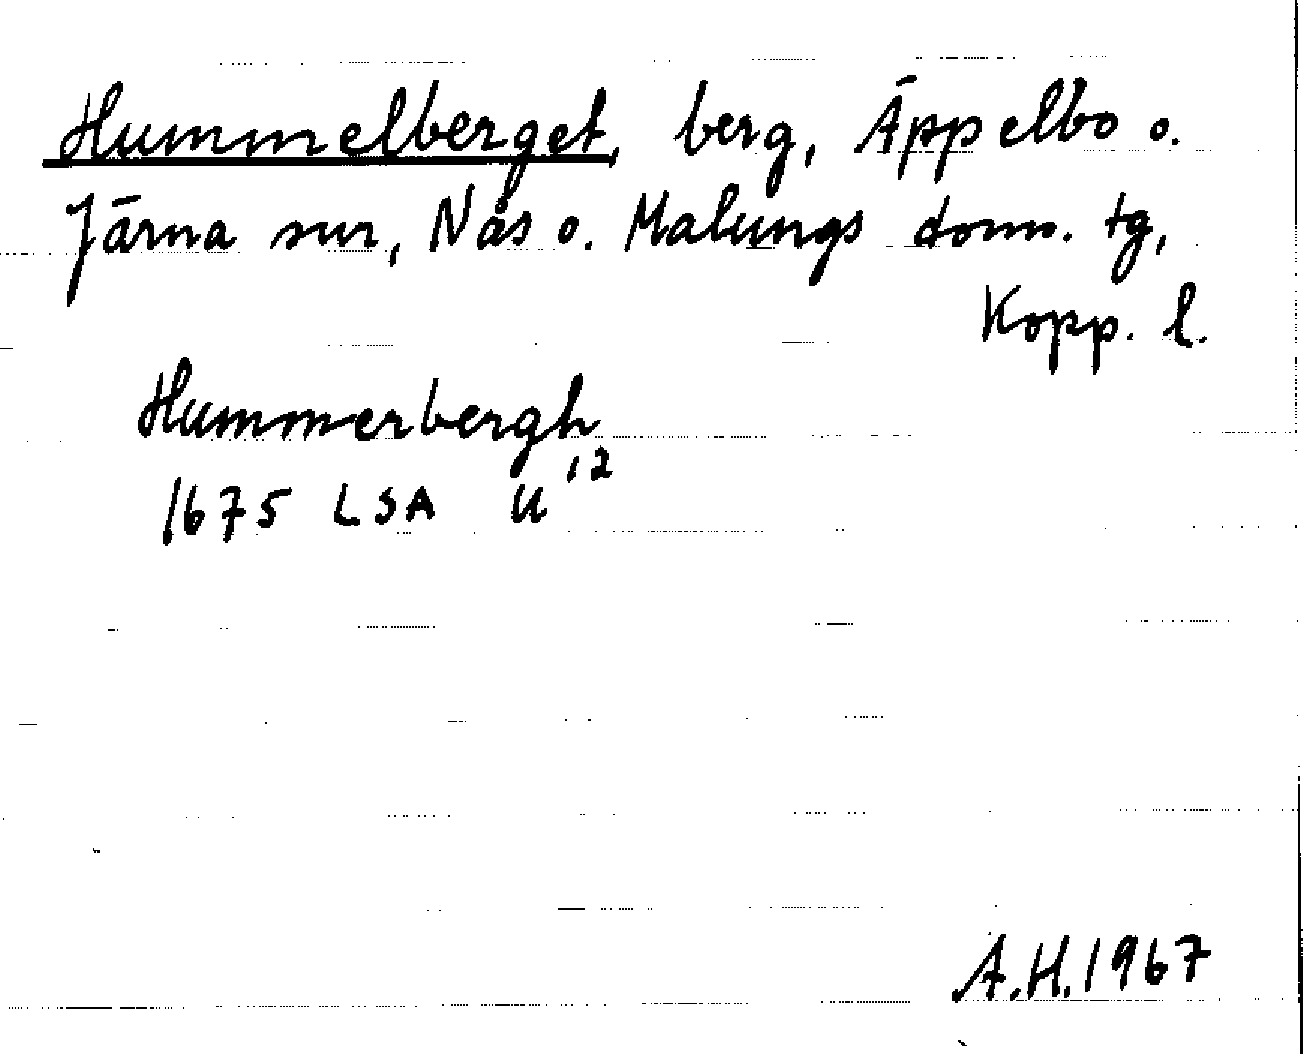 Hummelberget, berg, Äppelbo o.
Järna snr, Nås o. Malungs doms. tg,
Kopp. l.
Hummerbergh
1675 LSA U 12
A.H. 1967